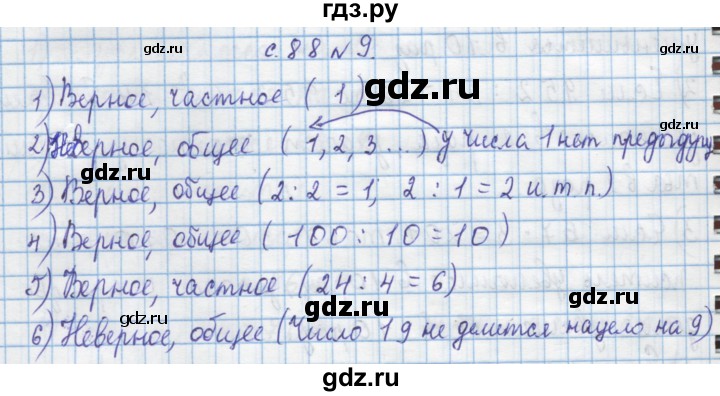 гдз.ру
с. 88 №9.
gdz.ru gdz.ru
1) Верное, частное ( 1 )
gdz.ru
2) Неверное, общее ( 1, 2, 3 ... ) у числа 1 нет предыдущ
gdz.ru gdz.ru
3) Верное, общее (2 : 2 = 1, 2 : 1 = 2 и. т. п.)
gdz.ru
4) Верное, общее ( 100 : 10 = 10 )
gdz.ru gdz.ru
5) Верное, частное (24 : 4 = 6)
gdz.ru gdz.ru
6) Неверное, общее (Число 19 не делится нацело на 9)
gdz.ru
gdz.ru